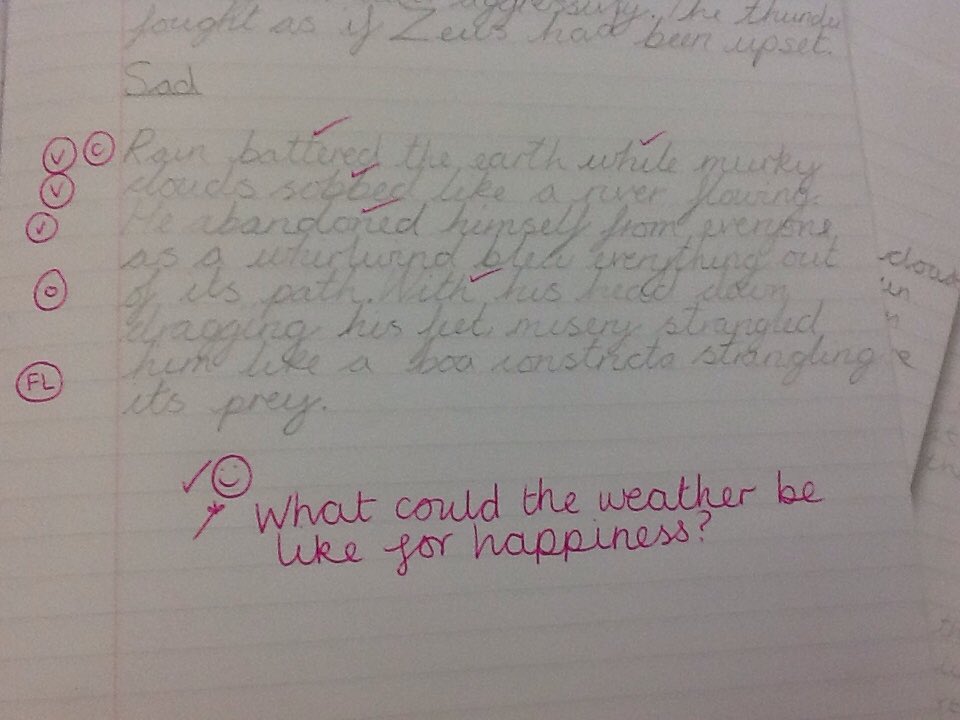 aggressify. The thunder
fought as if Zeus had been upset.
Sad
V C Rain battered the earth while murky
V clouds sobbed like a river flowing.
V He abandoned himself from everyone,
as a whirlwind blew everything out
O of its path. With his head down
dragging his feet misery strangled
him like a boa constricta strangling
FL its prey.
What could the weather be
like for happiness?
cloud